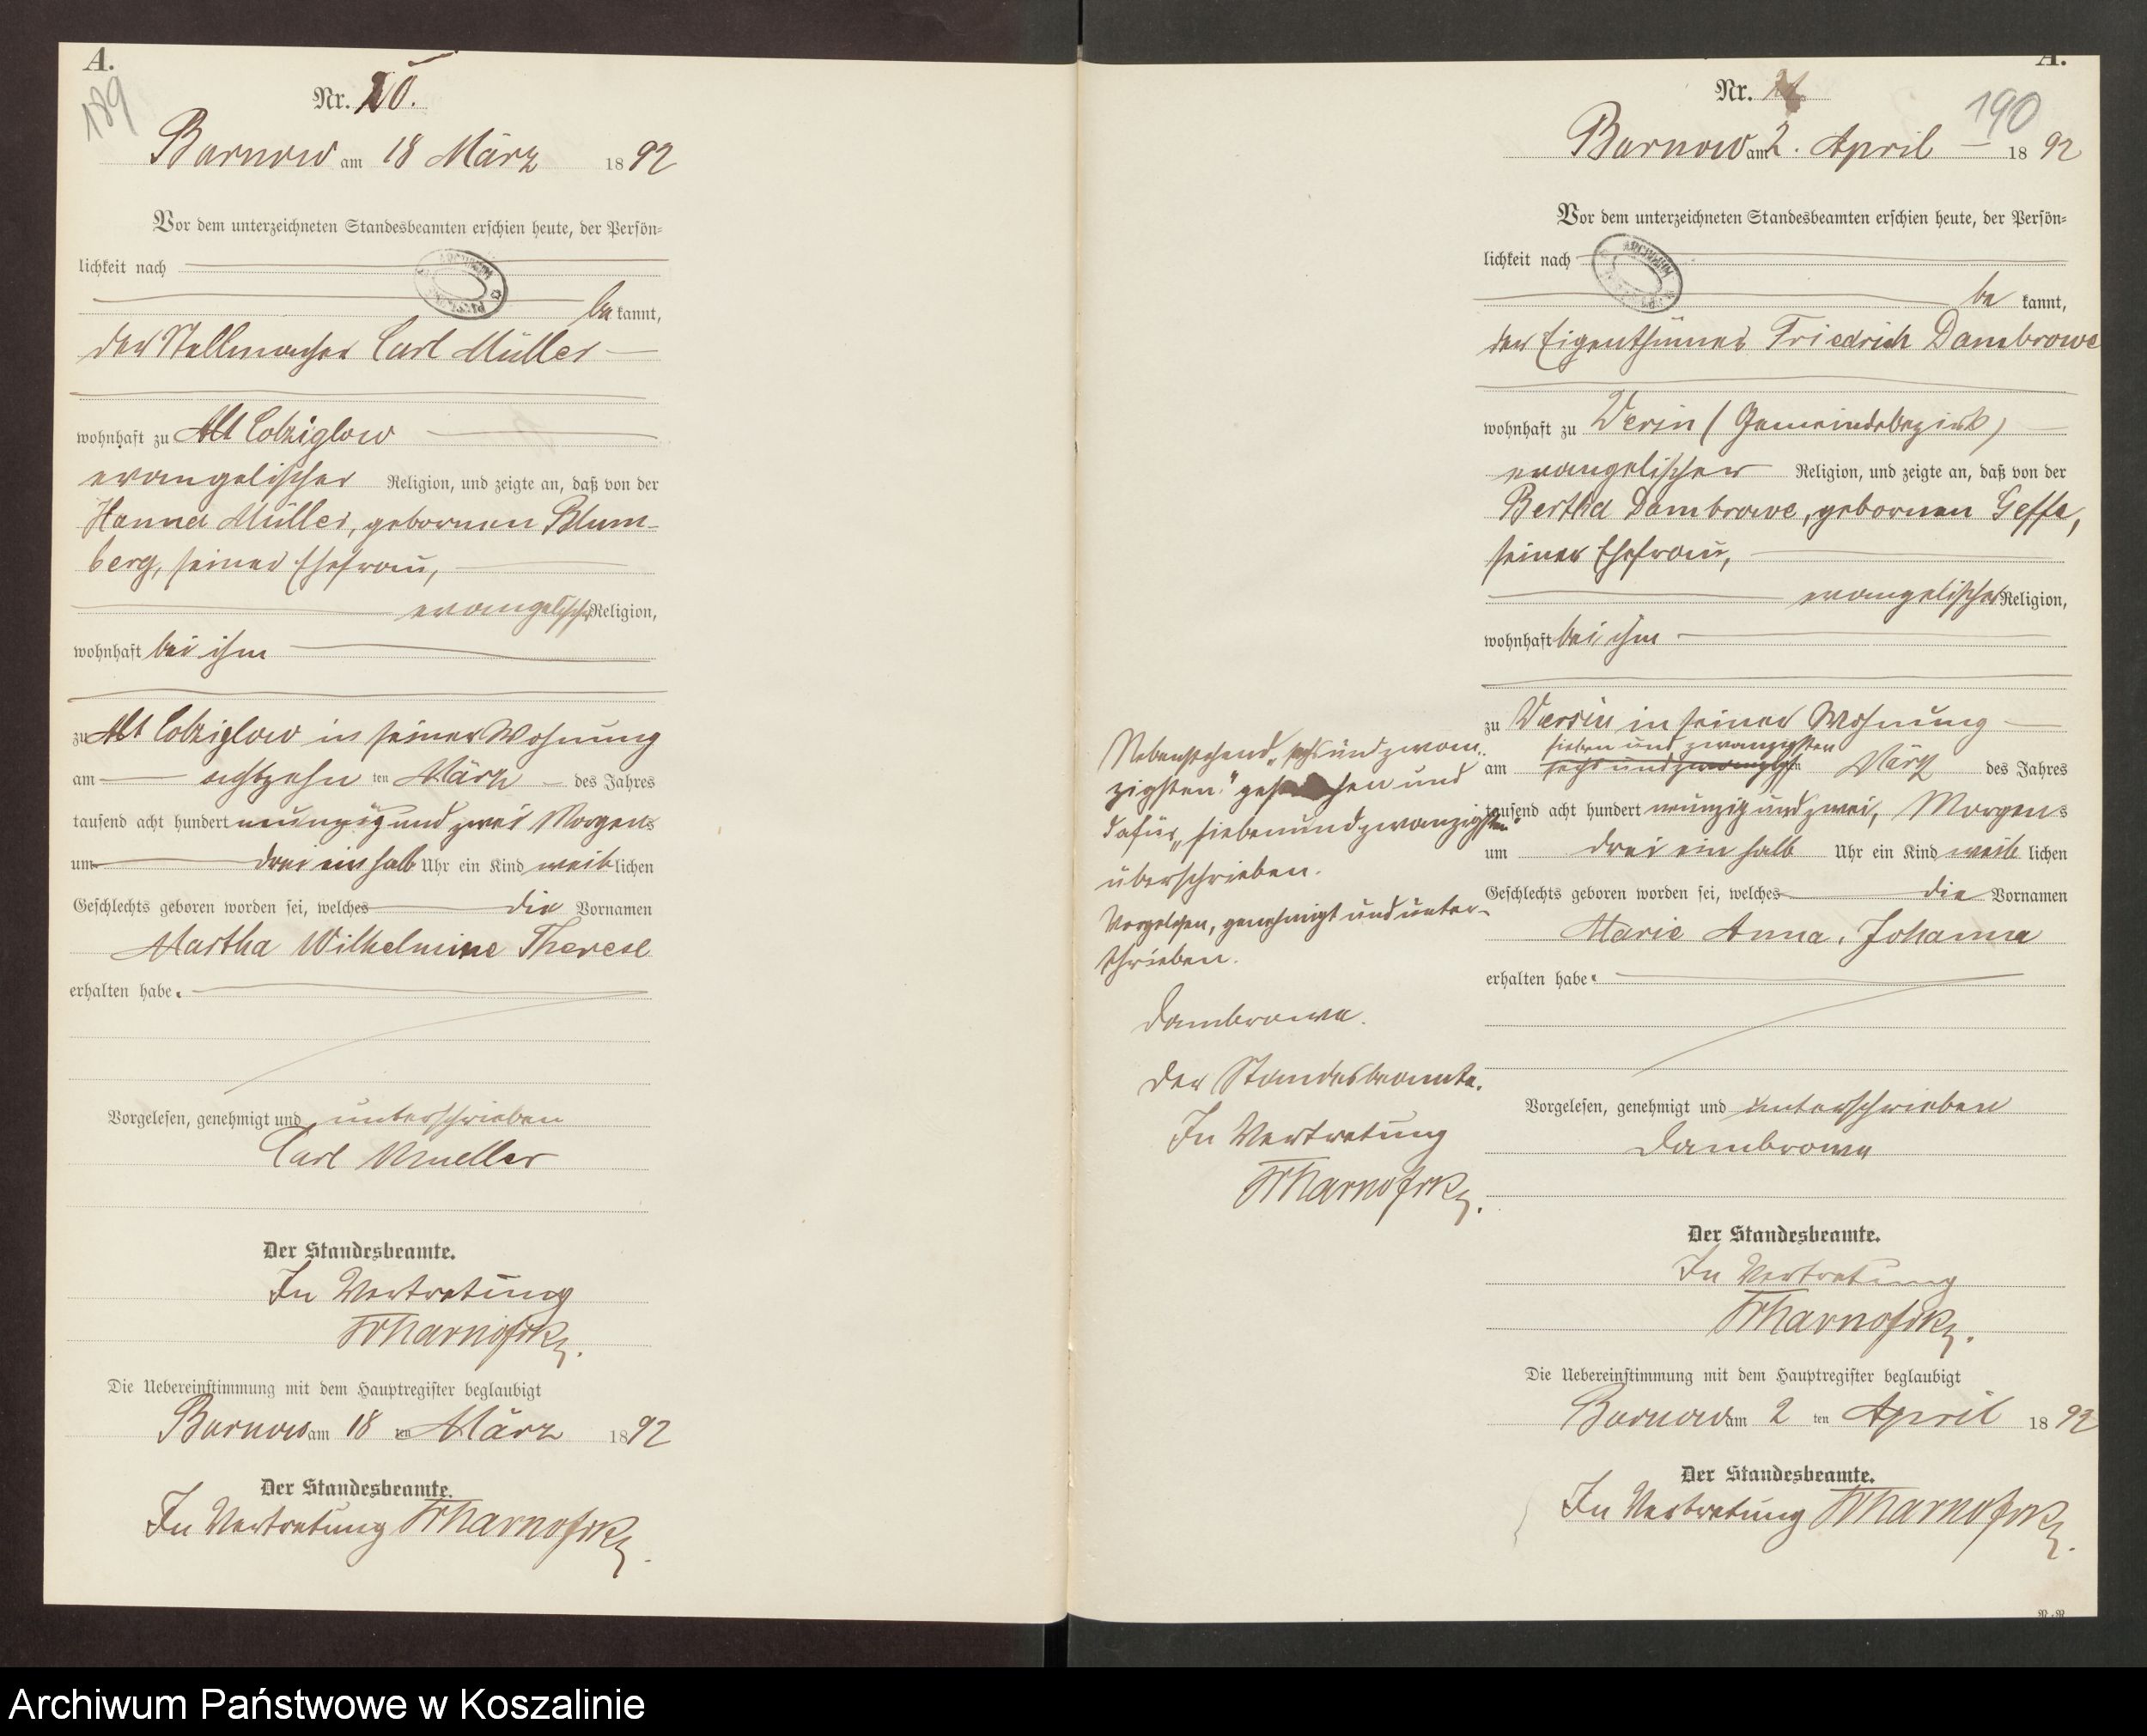 A.
189
Nr. 20.
Barnow am 18 März 1892
Vor dem unterzeichneten Standesbeamten erschien heute, der Persön-
lichkeit nach
be kannt,
der Stellmacher Carl Müller
wohnhaft zu Alt Colziglow
evangelischer Religion, und zeigte an, daß von der
Hanna Müller, gebornen Blum-
berg, seiner Ehefrau,
evangelischer Religion,
wohnhaft bei ihm
zu Alt Colziglow in seiner Wohnung
am achtzehn ten März des Jahres
tausend acht hundert neunzig und zwei Morgens
um drei ein halb Uhr ein Kind weib lichen
Geschlechts geboren worden sei, welches die Vornamen
Martha Wilhelmine Therese
erhalten habe.
Vorgelesen, genehmigt und unterschrieben
Carl Mueller
Der Standesbeamte.
In Vertretung
Die Uebereinstimmung mit dem Hauptregister beglaubigt
Barnow am 18 ten März 1892
Der Standesbeamte.
In Vertretung
A.
190
Nr. 21
Barnow am 2. April 1892
Vor dem unterzeichneten Standesbeamten erschien heute, der Persön-
lichkeit nach
be kannt,
der Eigenthümer Friedrich Dambrowe
wohnhaft zu Versin (Gemeindebezirk)
evangelischer Religion, und zeigte an, daß von der
Bertha Dambrowe, gebornen Geffe,
seiner Ehefrau,
evangelischer Religion,
wohnhaft bei ihm
zu Versin in seiner Wohnung
sieben und zwanzigsten
am sechs und zwanzigsten März des Jahres
tausend acht hundert neunzig und zwei, Morgens
um drei ein halb Uhr ein Kind weib lichen
Geschlechts geboren worden sei, welches die Vornamen
Marie Anna, Johanna
erhalten habe.
Vorgelesen, genehmigt und unterschrieben
Dambrowe
Der Standesbeamte.
In Vertretung
Die Uebereinstimmung mit dem Hauptregister beglaubigt
Barnow am 2 ten April 1892
Der Standesbeamte.
In Vertretung
Nebenstehend „sechsundzwan-
zigsten" gestrichen und
dafür „siebenundzwanzigsten"
überschrieben.
Vorgelesen, genehmigt und unter-
schrieben.
Dambrowe.
Der Standesbeamte.
In Vertretung
Archiwum Państwowe w Koszalinie